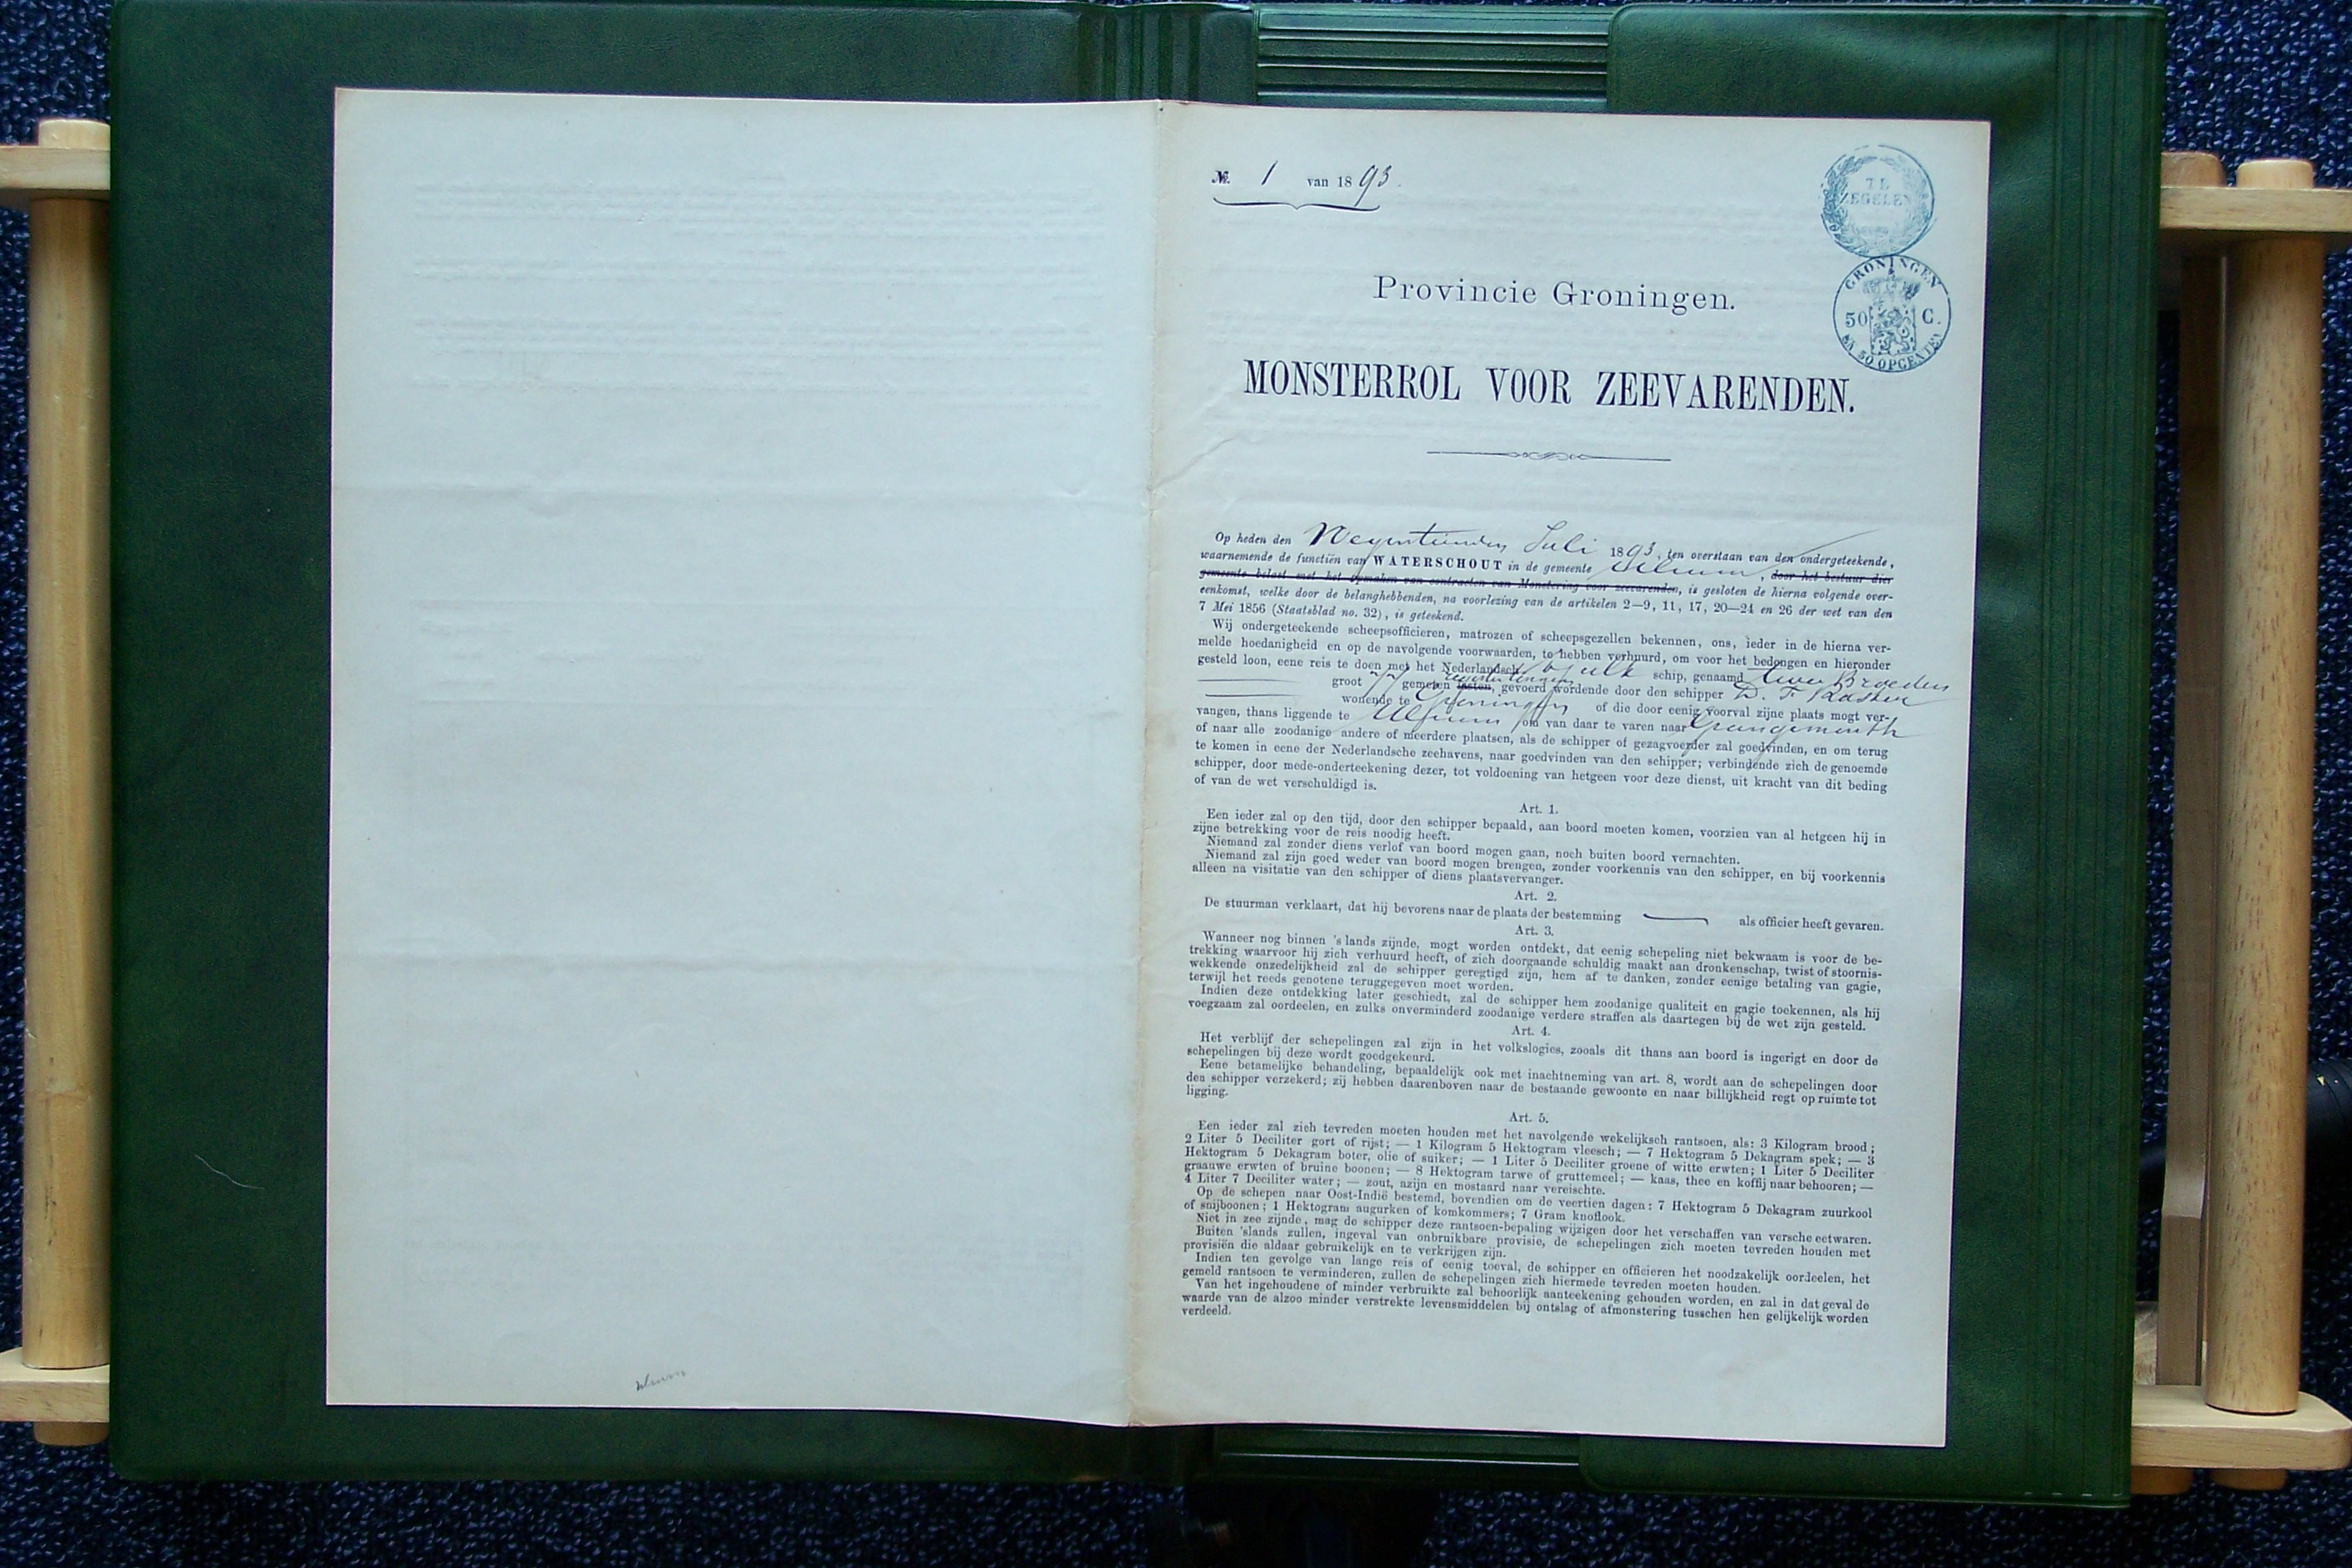 №. 1 van 1893.
TE
ZEGELEN
GRONINGEN
50 C.
EN 50 OPCENTEN
Provincie Groningen.
MONSTERROL VOOR ZEEVARENDEN.
Op heden den Negentienden Juli 1893, ten overstaan van den ondergeteekende,
waarnemende de functiën van WATERSCHOUT in de gemeente Ulrum, door het bestuur dier
gemeente belast met het opmaken van contracten van Monstering voor zeevarenden, is gesloten de hierna volgende over-
eenkomst, welke door de belanghebbenden, na voorlezing van de artikelen 2—9, 11, 17, 20—24 en 26 der wet van den
7 Mei 1856 (Staatsblad no. 32), is geteekend.
Wij ondergeteekende scheepsofficieren, matrozen of scheepsgezellen bekennen, ons, ieder in de hierna ver-
melde hoedanigheid en op de navolgende voorwaarden, te hebben verhuurd, om voor het bedongen en hieronder
gesteld loon, eene reis te doen met het Nederlandsch tjalk schip, genaamd twee Broeders
groot 77 gemeten lasten, registertonnen gevoerd wordende door den schipper D. F. Kasker
wonende te Groningen of die door eenig voorval zijne plaats mogt ver-
vangen, thans liggende te Ulrum om van daar te varen naar Grangemouth
of naar alle zoodanige andere of meerdere plaatsen, als de schipper of gezagvoerder zal goedvinden, en om terug
te komen in eene der Nederlandsche zeehavens, naar goedvinden van den schipper; verbindende zich de genoemde
schipper, door mede-onderteekening dezer, tot voldoening van hetgeen voor deze dienst, uit kracht van dit beding
of van de wet verschuldigd is.
Art. 1.
Een ieder zal op den tijd, door den schipper bepaald, aan boord moeten komen, voorzien van al hetgeen hij in
zijne betrekking voor de reis noodig heeft.
Niemand zal zonder diens verlof van boord mogen gaan, noch buiten boord vernachten.
Niemand zal zijn goed weder van boord mogen brengen, zonder voorkennis van den schipper, en bij voorkennis
alleen na visitatie van den schipper of diens plaatsvervanger.
Art. 2.
De stuurman verklaart, dat hij bevorens naar de plaats der bestemming — als officier heeft gevaren.
Art. 3.
Wanneer nog binnen 's lands zijnde, mogt worden ontdekt, dat eenig schepeling niet bekwaam is voor de be-
trekking waarvoor hij zich verhuurd heeft, of zich doorgaande schuldig maakt aan dronkenschap, twist of stoornis-
wekkende onzedelijkheid zal de schipper geregtigd zijn, hem af te danken, zonder eenige betaling van gagie,
terwijl het reeds genotene teruggegeven moet worden.
Indien deze ontdekking later geschiedt, zal de schipper hem zoodanige qualiteit en gagie toekennen, als hij
voegzaam zal oordeelen, en zulks onverminderd zoodanige verdere straffen als daartegen bij de wet zijn gesteld.
Art. 4.
Het verblijf der schepelingen zal zijn in het volkslogies, zooals dit thans aan boord is ingerigt en door de
schepelingen bij deze wordt goedgekeurd.
Eene betamelijke behandeling, bepaaldelijk ook met inachtneming van art. 8, wordt aan de schepelingen door
den schipper verzekerd; zij hebben daarenboven naar de bestaande gewoonte en naar billijkheid regt op ruimte tot
ligging.
Art. 5.
Een ieder zal zich tevreden moeten houden met het navolgende wekelijksch rantsoen, als: 3 Kilogram brood;
2 Liter 5 Deciliter gort of rijst; — 1 Kilogram 5 Hektogram vleesch; — 7 Hektogram 5 Dekagram spek; — 3
Hektogram 5 Dekagram boter, olie of suiker; — 1 Liter 5 Deciliter groene of witte erwten; 1 Liter 5 Deciliter
graauwe erwten of bruine boonen; — 8 Hektogram tarwe of gruttemeel; — kaas, thee en koffij naar behooren; —
4 Liter 7 Deciliter water; — zout, azijn en mostaard naar vereischte.
Op de schepen naar Oost-Indië bestemd, bovendien om de veertien dagen: 7 Hektogram 5 Dekagram zuurkool
of snijboonen; 1 Hektogram augurken of komkommers; 7 Gram knoflook.
Niet in zee zijnde, mag de schipper deze rantsoen-bepaling wijzigen door het verschaffen van versche eetwaren.
Buiten 'slands zullen, ingeval van onbruikbare provisie, de schepelingen zich moeten tevreden houden met
provisiën die aldaar gebruikelijk en te verkrijgen zijn.
Indien ten gevolge van lange reis of eenig toeval, de schipper en officieren het noodzakelijk oordeelen, het
gemeld rantsoen te verminderen, zullen de schepelingen zich hiermede tevreden moeten houden.
Van het ingehoudene of minder verbruikte zal behoorlijk aanteekening gehouden worden, en zal in dat geval de
waarde van de alzoo minder verstrekte levensmiddelen bij ontslag of afmonstering tusschen hen gelijkelijk worden
verdeeld.
Ulrum